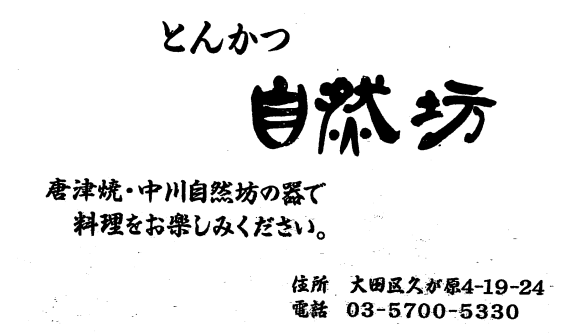 とんかつ
自然坊
唐津焼・中川自然坊の器で
料理をお楽しみください。
住所 大田区久が原4-19-24
電話 03-5700-5330